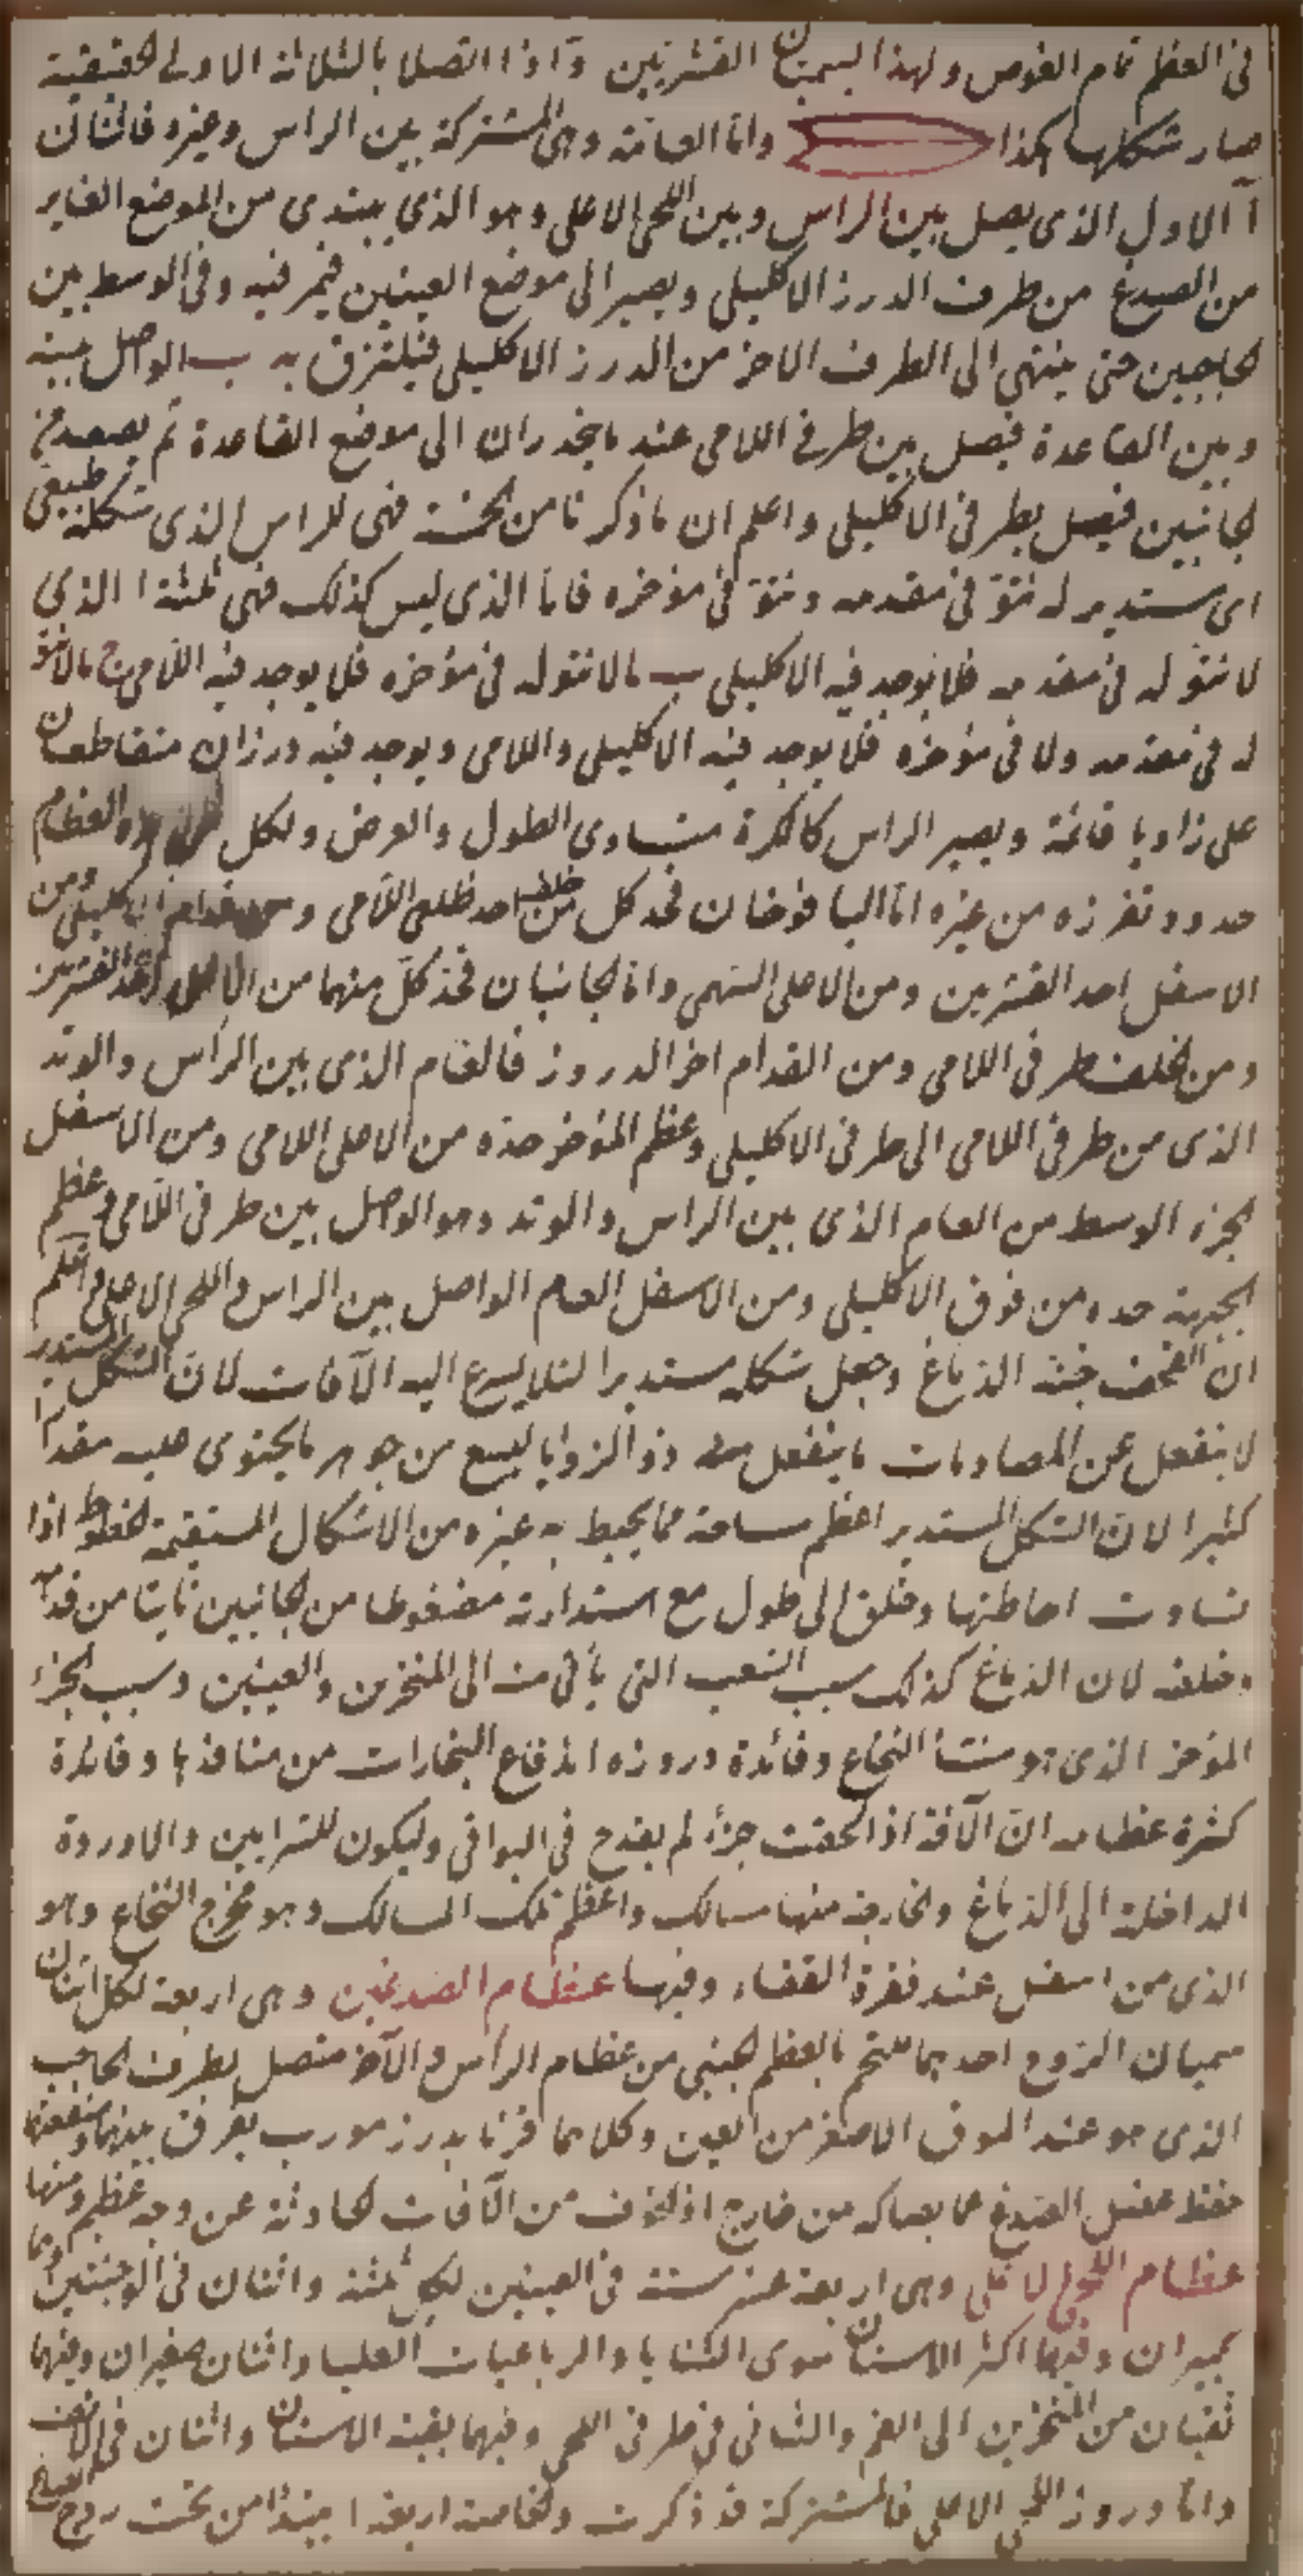 فى العظم تمام الغوص ولهذا يسميان القشريين وآذا اتصلا بالثلاثة الاولى الحقيقية
صار شكلها هكذا وامّا العامّة وهى المشتركة بين الراس وغيره فاثنان
آ الاول الذى يصل بين الراس وبين اللحى الاعلى وهو الذى يبتدى من الموضع الغاير
من الصدغ من طرف الدرز الاكليلى ويصير الى موضع العينين فيمر فيه وفى الوسط بين
الحاجبين حتى ينتهى الى الطرف الاخر من الدرز الاكليلى فيلتزق به ب الواصل بينه
وبين القاعدة فيصل بين طرفى اللامى عند ما ينحدران الى موضع القاعدة ثم يصعد من
الجانبين فيصل بطرفى الاكليلى واعلم ان ما ذكرنا من الخمسة فهى للراس الذى شكله طبيعى
اى مستدير له نتؤ فى مقدمه ونتؤ فى مؤخره فامّا الذى ليس كذلك فهى ثلثة ا الذى
لا نتؤ له فى مقدمه فلا يوجد فيه الاكليلى ب ما لا نتؤ له فى مؤخره فلا يوجد فيه اللامى ج ما لا نتؤ
له فى مقدمه ولا فى مؤخره فلا يوجد فيه الاكليلى واللامى ويوجد فيه درزان متقاطعان
على زوايا قائمة ويصير الراس كالكرة متساوى الطول والعرض ولكل العظام
حدود تفرزه من غيره امّا اليافوخان فحد كل من خلف احد ضلعى اللامى ومن قدام الاكليلى ومن
الاسفل احد القشريين ومن الاعلى السهمى وامّا الجانبان فحد كلّ منهما من الاعلى احد القشريين
ومن الخلف طرفى اللامى ومن القدام اخر الدروز فالعام الذى بين الرأس والوتد
الذى من طرفى اللامى الى طرفى الاكليلى وعظم المؤخر حده من الاعلى اللامى ومن الاسفل
الجزء الوسط من العام الذى بين الراس والوتد وهو الواصل بين طرفى اللامى وعظم
الجبهة حده من فوق الاكليلى ومن الاسفل العام الواصل بين الراس واللحى الاعلى واعلم
ان القحف جنة الدماغ وجعل شكله مستديرا لئلا يسرع اليه الآفات لان الشكل المستدير
لا ينفعل عن المصادمات ما ينفعل منه ذو الزوايا ليسع من جوهر ما يحتوى عليه مقدارا
كثيرا لان الشكل المستدير اعظم مساحة مما يحيط به غيره من الاشكال المستقيمة الخطوط اذا
تساوت احاطتها وخلق الى طول مع استدارته مضغوطا من الجانبين ناتيا من قدامه
وخلفه لان الدماغ كذلك بسبب الشعب التى يأتى منه الى المنخرين والعينين وبسبب الجزء
المؤخر الذى هو منشأ النخاع وفائدة دروزه اندفاع البخارات من منافذها وفائدة
كثرة عظامه ان الآفة اذا لحقت جزءً لم يقدح فى البواقى وليكون للشرايين والاوردة
الداخلة الى الدماغ والخارجة منها مسالك واعظم تلك المسالك وهو مخرج النخاع وهو
الذى من اسفل عند فقرة القفاء ومنها عظام الصدغين وهى اربعة لكل اثنان
يسميان الزوج احدهما ملتحم بالعظم الجنبى من عظام الرأس والآخر متصل بطرف الحاجب
الذى هو عند الموق الاصغر من العين وكلاهما قرنا بدرز مورب يفرق بينهما ومنفعتها
حفظ عضل الصدغ عما يصاكه من خارج اذ الخوف من الآفات الحادثة عن وجه عظيم ومنها
عظام اللحى الاعلى وهى اربعة عشر ستة فى العينين لكل ثلثة واثنان فى الوجنتين وهما
كبيران وفيهما اكثر الاسنان سوى الثنايا والرباعيات العليا واثنان صغيران وفيهما
ثقبان من المنخرين الى الفم والثانى فى طرفى اللحى وفيهما بقية الاسنان واثنان فى الانف
وامّا دروز اللحى الاعلى فالمشتركة قد ذكرت والخاصة اربعة ا يبتدأ من تحت زوج الصدغ